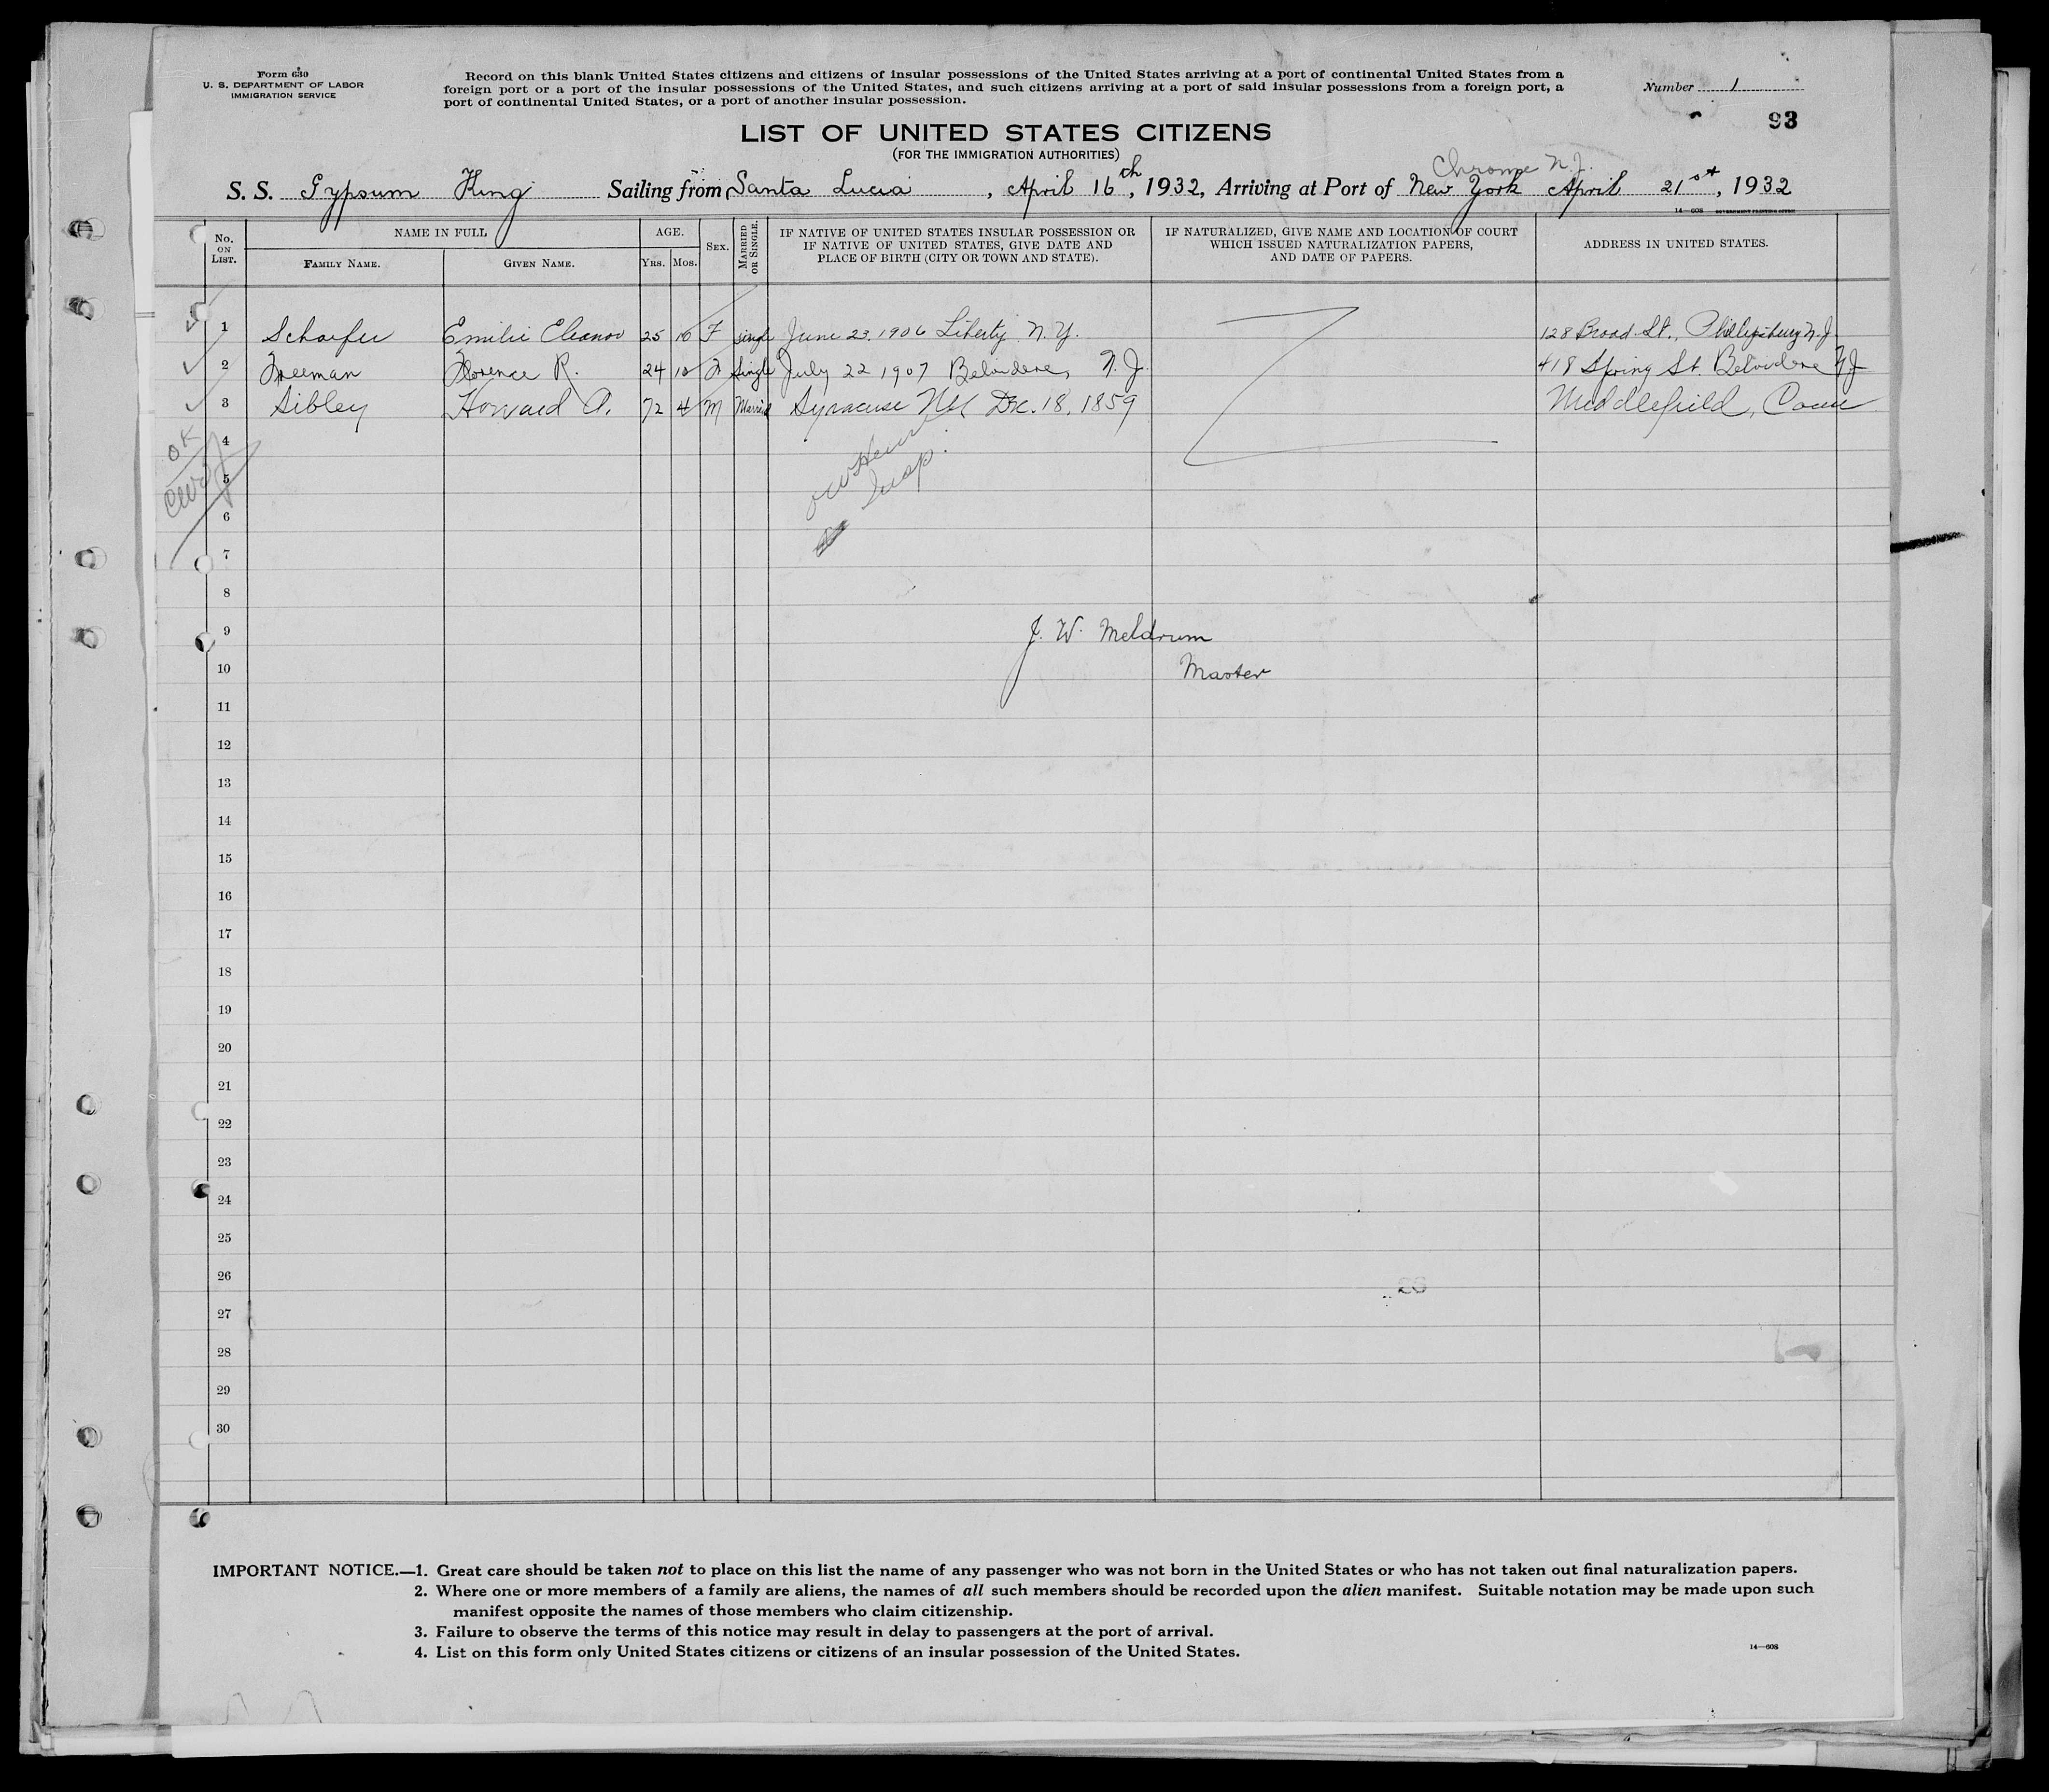 Form 630
U. S. DEPARTMENT OF LABOR
IMMIGRATION SERVICE
Record on this blank United States citizens and citizens of insular possessions of the United States arriving at a port of continental United States from a
foreign port or a port of the insular possessions of the United States, and such citizens arriving at a port of said insular possessions from a foreign port, a
port of continental United States, or a port of another insular possession.
Number 1
93
LIST OF UNITED STATES CITIZENS
(FOR THE IMMIGRATION AUTHORITIES)
Chrome N.J.
S. S. Gypsum King Sailing from Santa Lucia, April 16th, 1932, Arriving at Port of New York April 21st, 1932
14—608 GOVERNMENT PRINTING OFFICE
No. ON LIST. NAME IN FULL AGE. SEX. MARRIED OR SINGLE. IF NATIVE OF UNITED STATES INSULAR POSSESSION OR IF NATIVE OF UNITED STATES, GIVE DATE AND PLACE OF BIRTH (CITY OR TOWN AND STATE). IF NATURALIZED, GIVE NAME AND LOCATION OF COURT WHICH ISSUED NATURALIZATION PAPERS, AND DATE OF PAPERS. ADDRESS IN UNITED STATES.
FAMILY NAME. GIVEN NAME. YRS. MOS.
1 Schaefer Emilie Eleanor 25 10 F single June 23, 1906 Liberty N.Y. 128 Broad St., Phillipsburg N.J.
2 Freeman Florence R. 24 10 F Single July 22 1907 Belvidere, N.J. 418 Spring St. Belvidere N.J
3 Sibley Howard A. 72 4 M Married Syracuse NY Dec. 18, 1859 Middlefield, Conn
OK
4
Insp.
5
6
7
8
9 J. W. Meldrum
10 Master
11
12
13
14
15
16
17
18
19
20
21
22
23
24
25
26
27
28
29
30
IMPORTANT NOTICE.—1. Great care should be taken not to place on this list the name of any passenger who was not born in the United States or who has not taken out final naturalization papers.
2. Where one or more members of a family are aliens, the names of all such members should be recorded upon the alien manifest. Suitable notation may be made upon such
manifest opposite the names of those members who claim citizenship.
3. Failure to observe the terms of this notice may result in delay to passengers at the port of arrival.
4. List on this form only United States citizens or citizens of an insular possession of the United States.
14—608